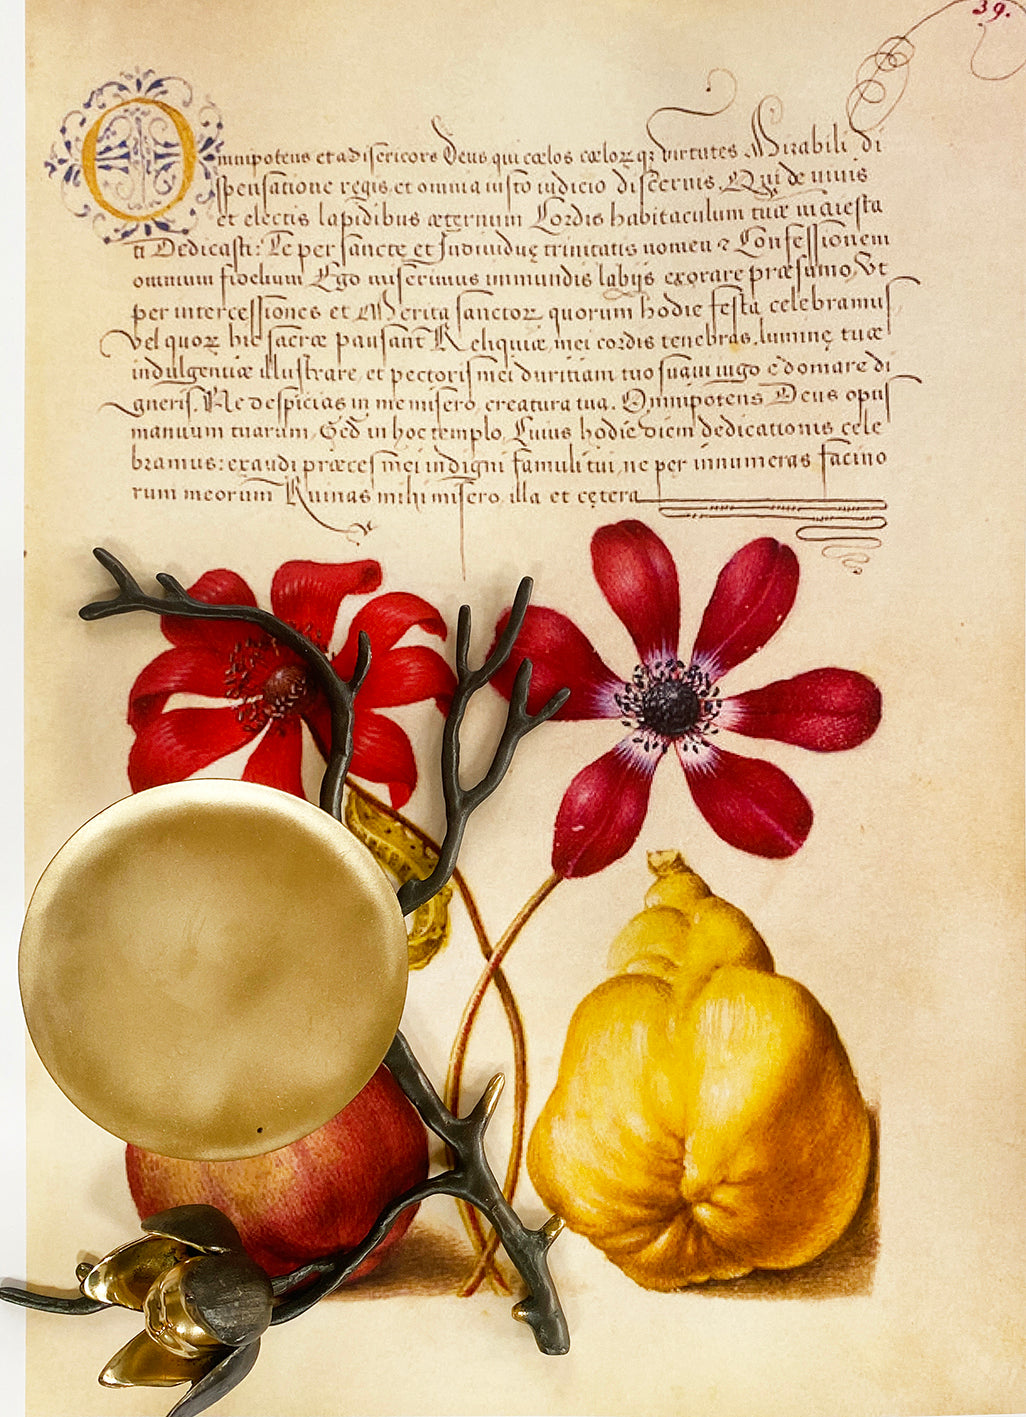 39.
Omnipotens et adisericors Deus qui cœlos cœlorꝝ qꝫ virtutes Mirabili di
spensatione regis et omnia iusto iudicio discernis, Qui de viuis
et electis lapidibus æternum Cordis habitaculum tuæ maiesta
ti Dedicasti: Te per sanctę et Indiuiduę trinitatis nomen & Confessionem
omnium fidelium Ego miserimus immundis labijs exorare præsumo, Vt
per intercessiones et Merita sanctorꝝ quorum hodie festa celebramus
Vel quorꝝ hic sacræ pausant Reliquiæ, mei cordis tenebras, lumine tuæ
indulgentiæ illustrare, et pectoris mei duritiam tuo suaui iugo edomare di
gneris. Ne despicias in me misero, creatura tua. Omnipotens Deus opus
manuum tuarum, Sed in hoc templo, Cuius hodie diem dedicationis cele
bramus: exaudi præces mei indigni famuli tui, ne per innumeras facino
rum meorum Ruinas mihi misero illa et cętera